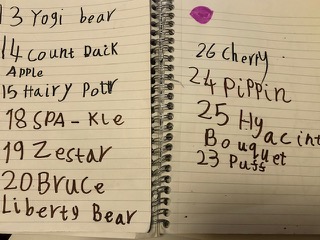 13 Yogi bear
14 Count Duck
Apple
15 Hairy Pottr
18 SPA-Kle
19 Zestar
20 Bruce
Liberty Bear
26 Cherry
24 PiPPin
25 Hyacint
Bouquet
23 Puff